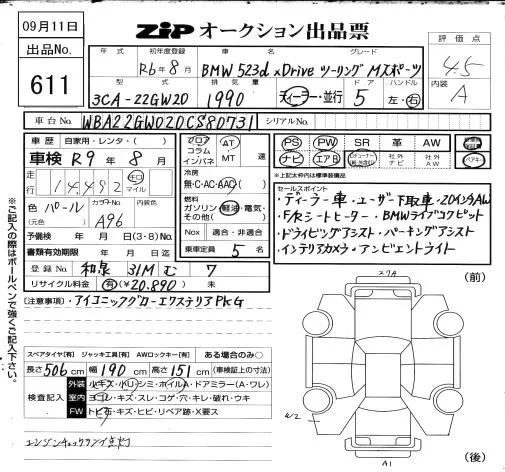 09月11日
ZIP オークション出品票
出品No.
611
年式 初年度登録 車名 グレード
R6年8月 BMW 523d xDrive ツーリング Mスポーツ
型式 排気量 ドア ハンドル
3CA-22GW20 1990 ディーラー・並行 5 左・右
評価点
4.5
内装
A
車台No. WBA22GW020CS80731 シリアルNo.
車歴 自家用・レンタ・( )
車検 R9年8月
走行 14,492 km マイル
色 パール カラーNo. 内装色
(元色) A96
予備検 年 月 日(3・8)No.
書類有効期限 年 月 日迄
登録No. 和泉 31M む 7
リサイクル料金 有(¥20,890) 未
フロア コラム インパネ AT MT 速
冷房 無・C・AC・AAC
燃料 ガソリン・軽油・電気・その他( )
Nox 適合・非適合
乗車定員 5 名
PS PW SR 革 AW
ナビ エアB 社外ナビ 社外AW
※上記太枠は標準装備品
セールスポイント
・ディーラー車・ユーザー下取車・20インチAW
・F/Rシートヒーター・BMWライブコクピット
・ドライビングアシスト・パーキングアシスト
・インテリアカメラ・アンビエントライト
[注意事項]・アイコニックグローエクステリアPKG
スペアタイヤ[有] ジャッキ工具[有] AWロックキー[有] ある場合のみ○
長さ506cm 幅190cm 高さ151cm (車検証上の寸法)
検査記入
外装 小キズ・小ヘコ・シミ・ホイルA・ドアミラー(A・ワレ)
室内 ヨゴレ・キズ・スレ・コゲ・穴・キレ・破れ・ウキ
FW トビ石・キズ・ヒビ・リペア跡・X要ス
エンジンチェックランプ点灯
(前)
W2
A1
(後)
※ご記入の際はボールペンで強くご記入下さい。